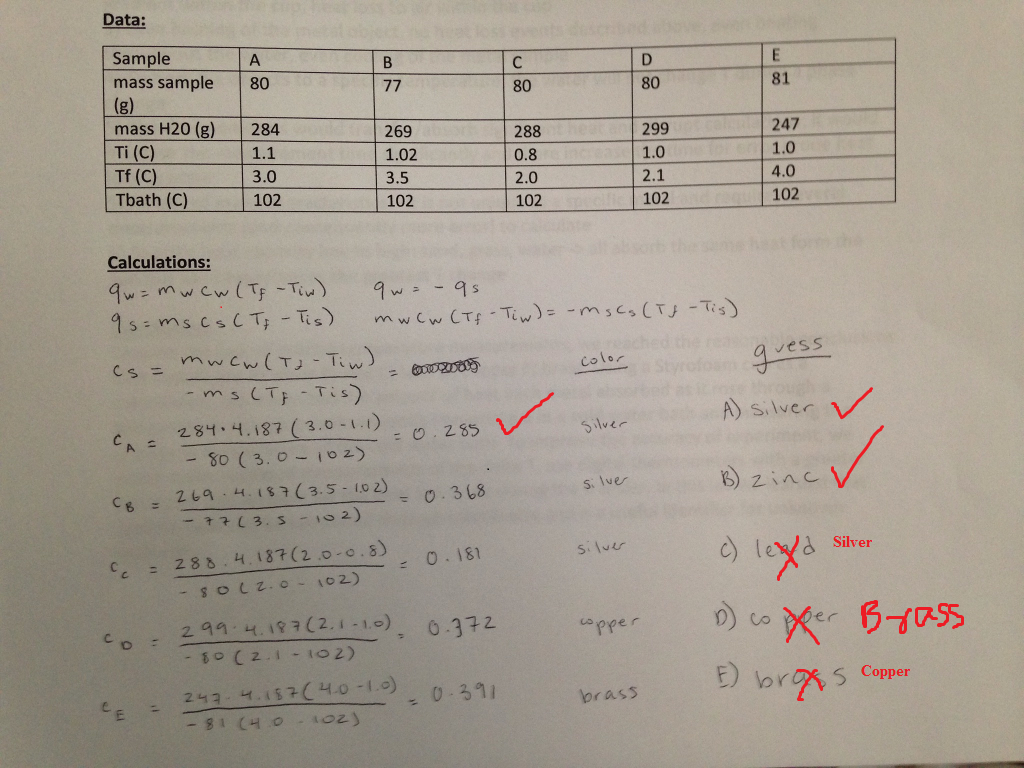 Data:
Sample A B C D E
mass sample (g) 80 77 80 80 81
mass H20 (g) 284 269 288 299 247
Ti (C) 1.1 1.02 0.8 1.0 1.0
Tf (C) 3.0 3.5 2.0 2.1 4.0
Tbath (C) 102 102 102 102 102
Calculations:
qw = mwcw(Tf - Tiw) qw = - qs
qs = mscs(Tf - Tis) mwcw(Tf - Tiw) = -mscs(Tf - Tis)
cs = mwcw(Tf - Tiw) / -ms(Tf - Tis) = color guess
cA = 284·4.187(3.0-1.1) / -80(3.0-102) = 0.285 silver A) silver
cB = 269·4.187(3.5-1.02) / -77(3.5-102) = 0.368 silver B) zinc
cc = 288·4.187(2.0-0.8) / -80(2.0-102) = 0.181 silver C) lead Silver
cD = 299·4.187(2.1-1.0) / -80(2.1-102) = 0.372 copper D) copper Brass
cE = 247·4.187(4.0-1.0) / -81(4.0-102) = 0.391 brass E) brass Copper